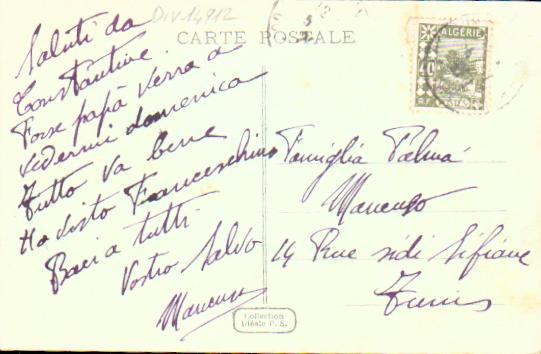 DIV14912
CARTE POSTALE
ALGERIE
40
R.F. POSTES
Saluti da
Constantine.
Forse papà verrà a
vedermi domenica
Tutto va bene
Ho visto Franceschino
Baci a tutti
Vostro Salvo
Mancuso
Famiglia Palma
Mancuso
14 Rue sidi Sifiane
Tunis
Collection
Idéale P. S.